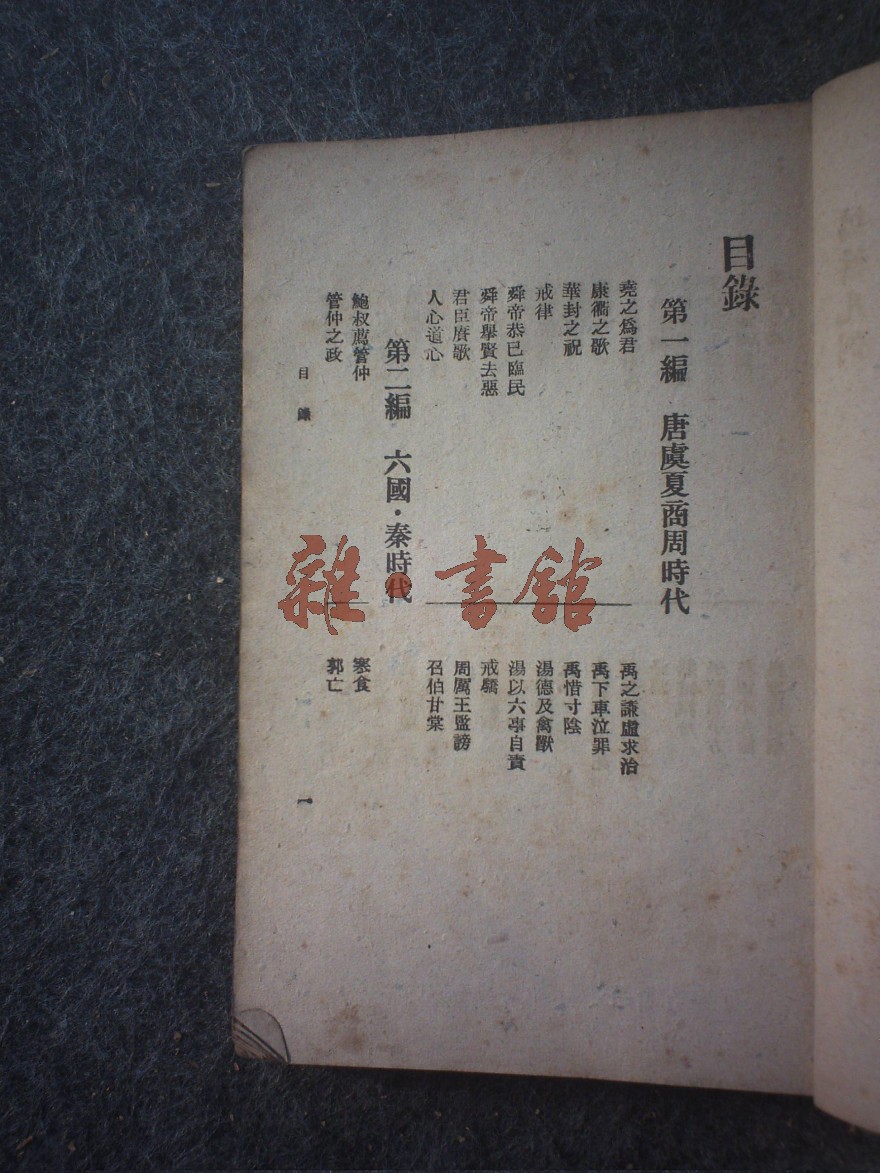 目錄
第一編　唐虞夏商周時代
堯之爲君
康衢之歌
華封之祝
戒律
舜帝恭已臨民
舜帝舉賢去惡
君臣賡歌
人心道心
禹之謙虛求治
禹下車泣罪
禹惜寸陰
湯德及禽獸
湯以六事自責
戒驕
周厲王監謗
召伯甘棠
第二編　六國·秦時代
鮑叔薦管仲
管仲之政
寒食
郭亡
目錄
一
雜·書館